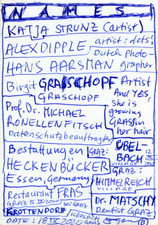 NAMES
KATJA STRUNZ (artist)
ALEX DIPPLE artist: dots!
Dutch Photo-
HANS AARSMAN grapher
Birgit GRASCHOPF Artist
GRASCHOPF And YES,
she is
Prof. Dr. MICHAEL growing
RONELLENFITSCH Gras on
Datenschutzbeauftragter her hair
Bestattungen GRAZ: ÜBEL-
BACH
HECKENBÜCKER GRAZ:
HIMMELREICH
Essen, Germany
Restaurant FRAS Dr. MATSCHY
GRAZ
KROTTENDORF Dentist GRAZ
DATE: